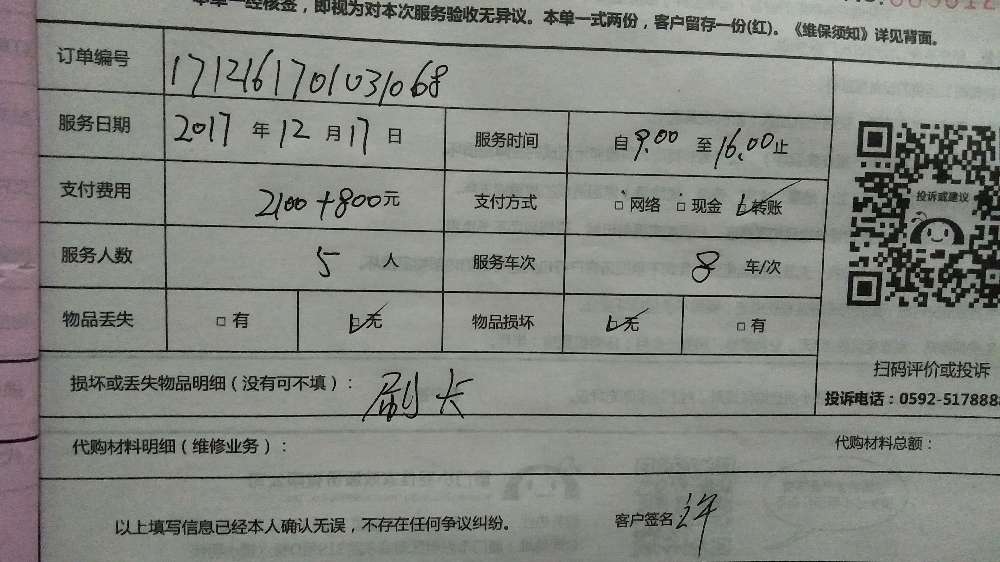 本单一经核签，即视为对本次服务验收无异议。本单一式两份，客户留存一份(红)。《维保须知》详见背面。
订单编号 1712161701031068
服务日期 2017 年 12 月 17 日 服务时间 自 9.00 至 16.00 止
支付费用 2100+800元 支付方式 □ 网络 □ 现金 □ 转账
投诉或建议
服务人数 5 人 服务车次 8 车/次
物品丢失 □ 有 □ 无 物品损坏 □ 无 □ 有
扫码评价或投诉
损坏或丢失物品明细（没有可不填）：
投诉电话：0592-5178888
代购材料明细（维修业务）： 代购材料总额：
以上填写信息已经本人确认无误，不存在任何争议纠纷。 客户签名 许